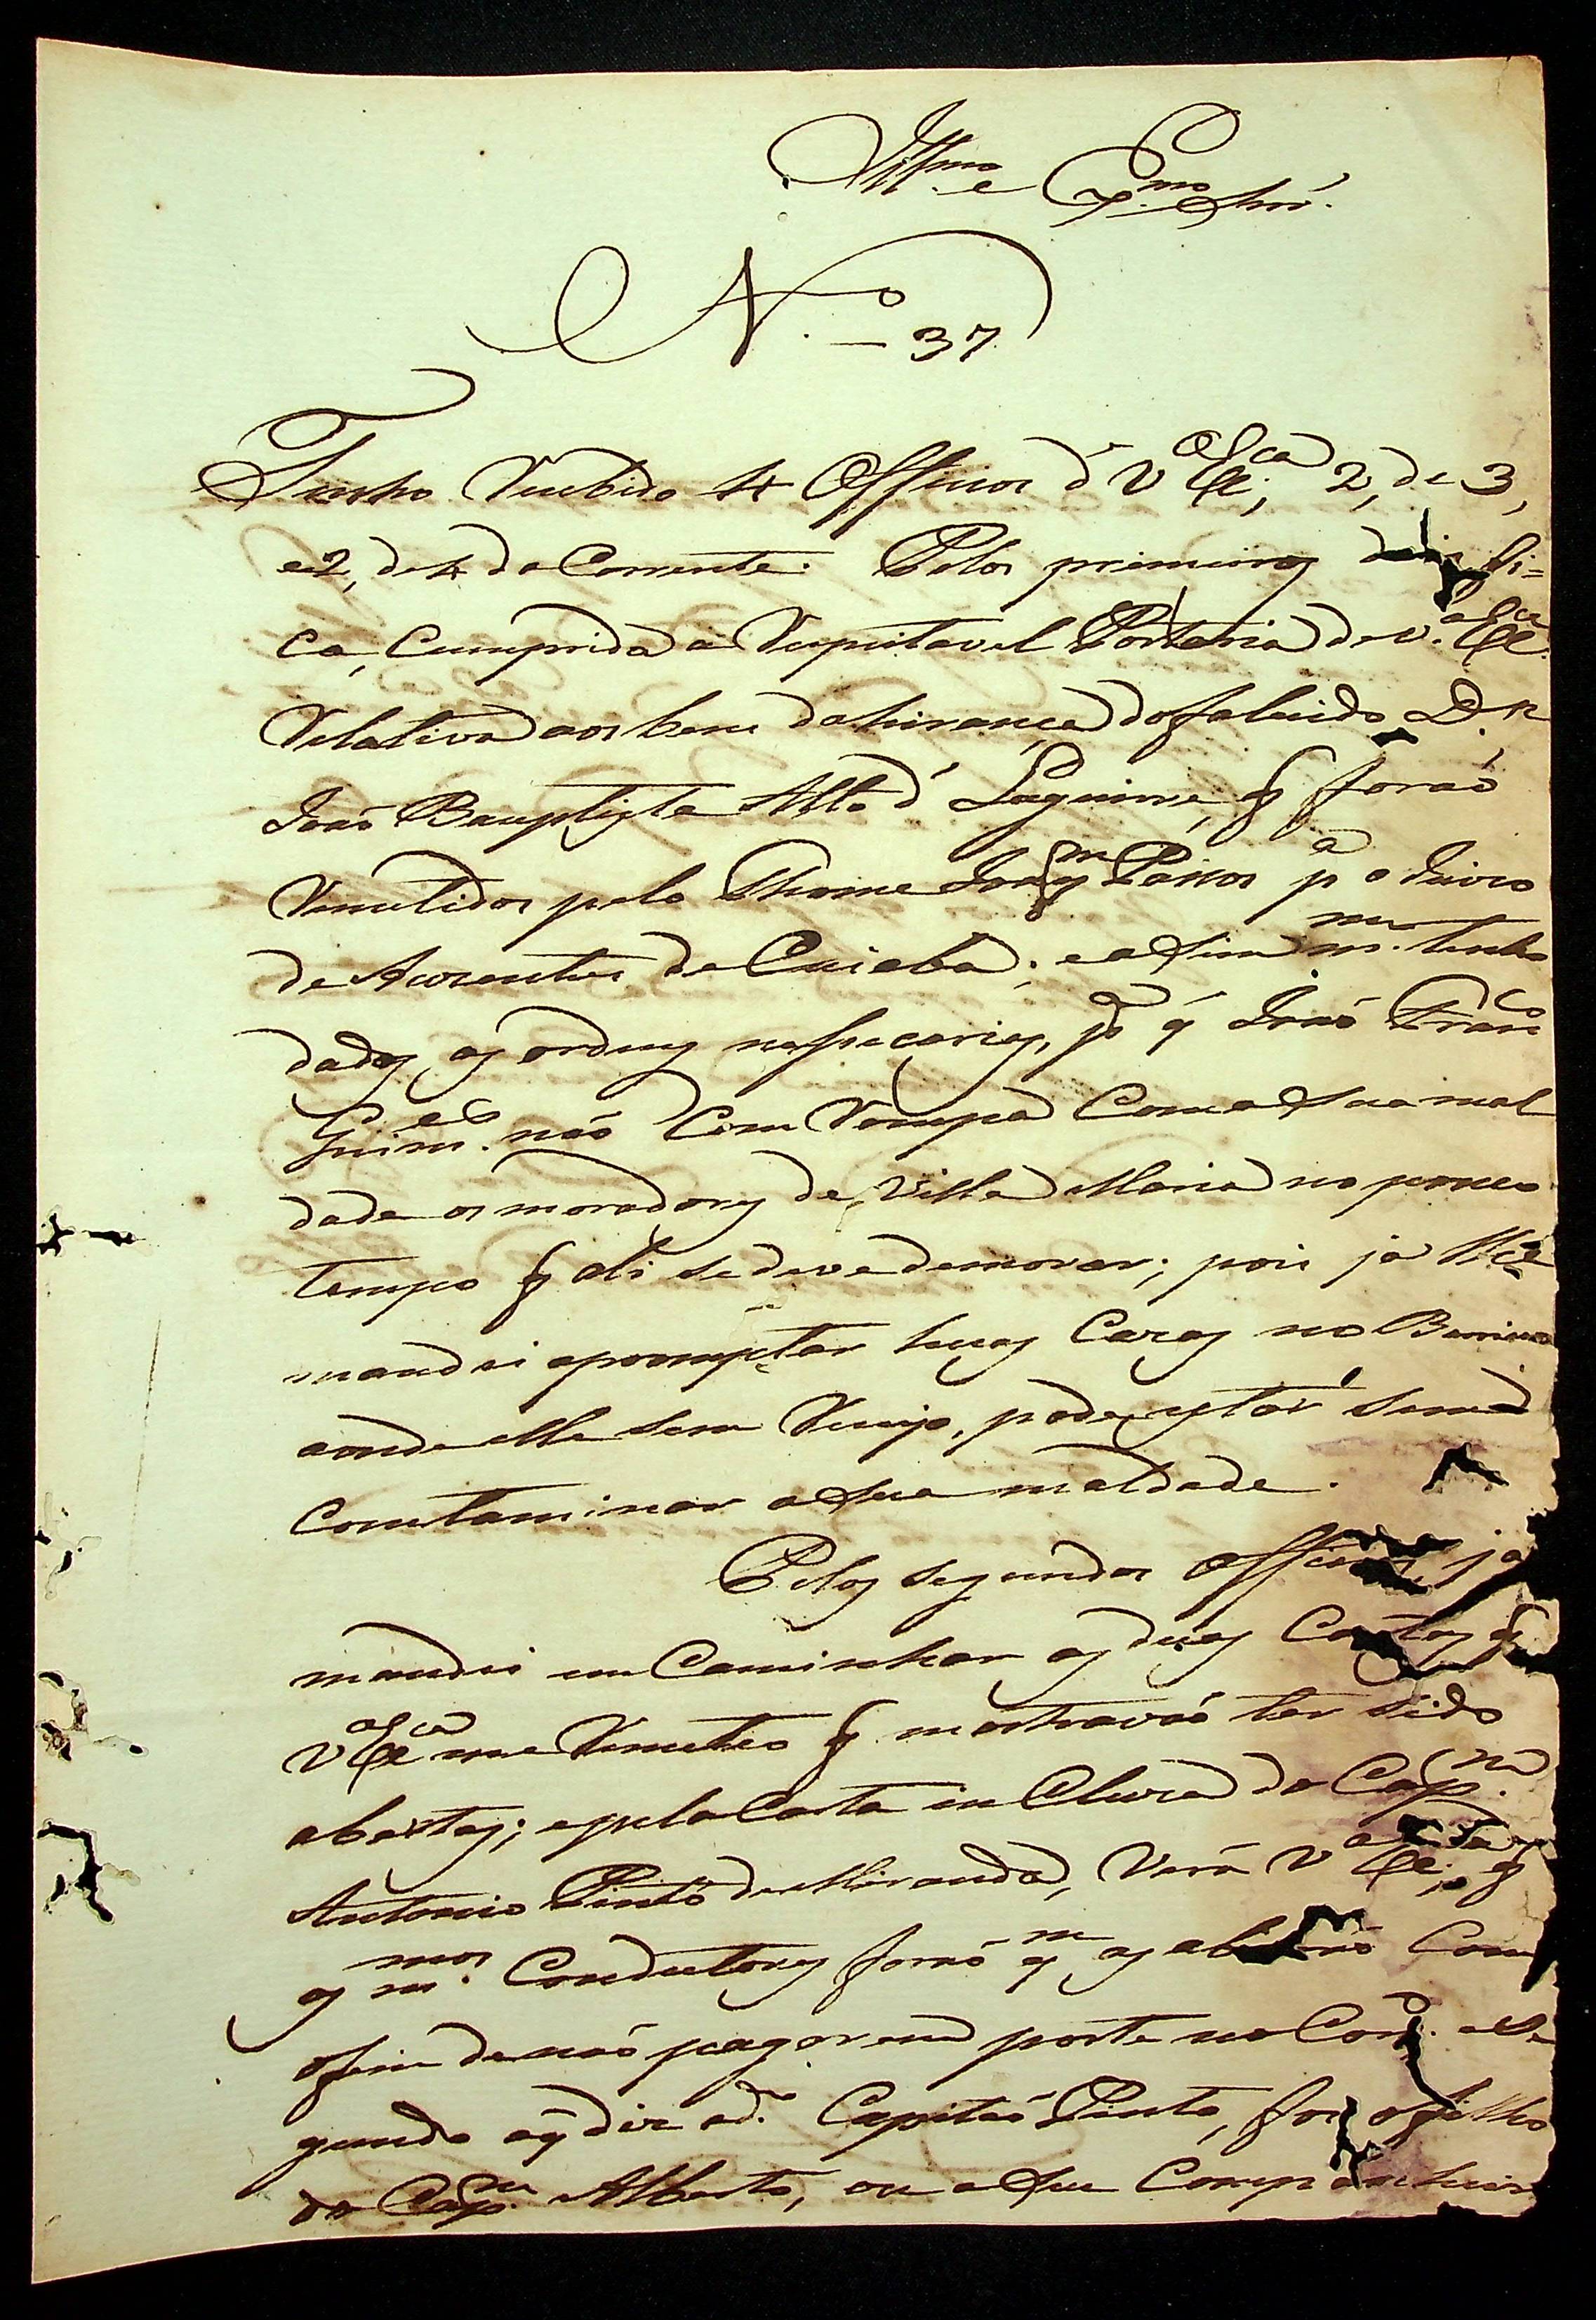 Illmo. e Exmo. Snr.
N.o — 37
Tenho Recebido 4 Officios d' V Exca., 2, de 3,
e 2, de 4 do Corrente. Pelos primeiros fi=
ca, Cumprida a Respeitavel Portaria de V. Exca.
Relativa aos bens da herança do falecido Dr.
João Bauptista Alto d' q forão
Remetidos pelo Thome Joaqm Passos pa o Juizo
de Auzentes de Cuiaba; e assim mmo. tenho
dados as ordens nessecarias, pa q João Franco
Guimes. não Com Rompa Com a Sua mal
dade os moradores de Villa Maria no pouco
tempo q ali se deve demorar; pois ja lhe
mandei apromptar huas Cazas no
aonde elle sem Receijo, pode estar sem
Contaminar a Sua maldade.
Pelos segundos Officios, ja
mandei em Caminhar as duas Cartas q
V Exca me Remeteo q mostravão ter sido
abertas; e pela Carta in Cluza do Capm.
Antonio Pinto de Miranda, Verá V Exca., q
os mmos. Condutores forão qm as abrirão Com
o fim de não pagarem porte no Corro. e Se
gundo o q diz o do. Capitão Pinto, foi o filho
do Capm. Alberto, ou o Seu Companheiro